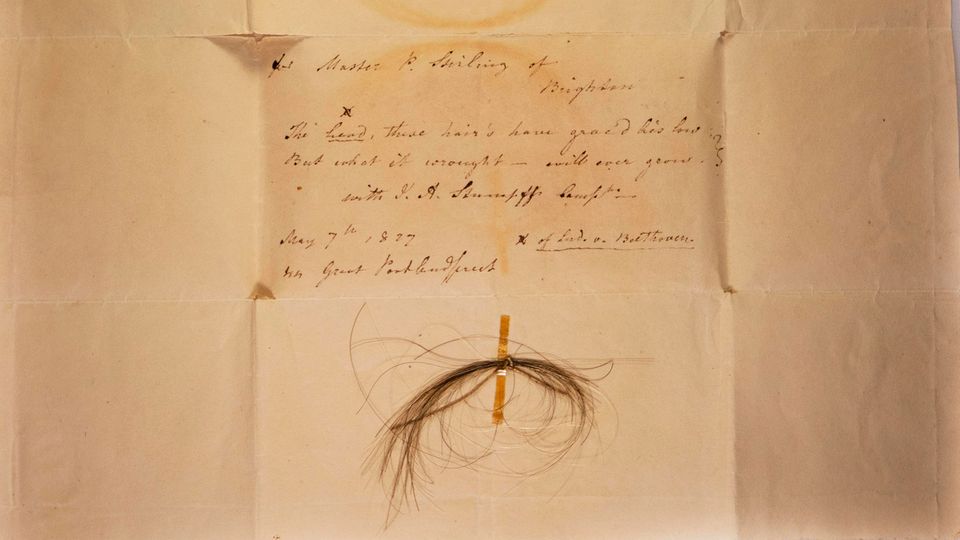 for Master P. Stirling of
Brighton
x
The head, these hair's have grac'd his low
But what it wrought — will ever grow.
with J. A. Stumpff's Compts —
May 7th, 1827
x of Lud. v. Beethoven.
44 Great Portland street